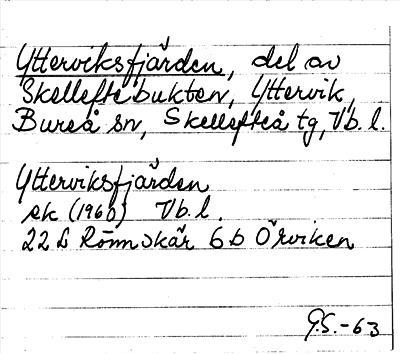 Ytterviksfjärden, del av
Skelleftebukten, Yttervik,
Bureå sn, Skellefteå tg, Vb. l.
Ytterviksfjärden
ek (1960) Vb. l.
22 L Rönnskär 6 b Örviken
G.S. -63